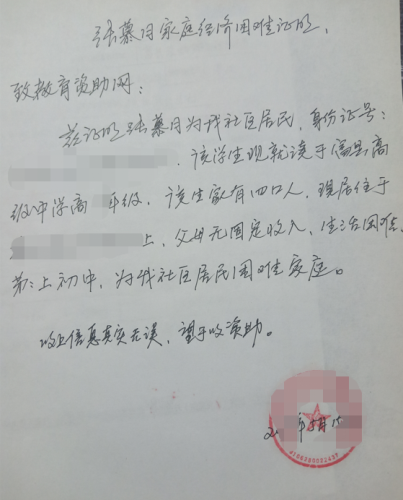 张慕月家庭经济困难证明
致教育资助网：
兹证明张慕月为我社区居民，身份证号：
，该学生现就读于 县高
级中学高 年级，该生家有四口人，现居住于
上，父母无固定收入，生活困难，
弟：上初中，为我社区居民困难家庭。
以上信息真实无误，望予以资助。
年 月